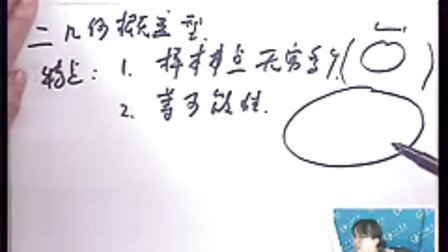 二 几何概型
特点: 1. 样本点无穷多个(
2. 等可能性.